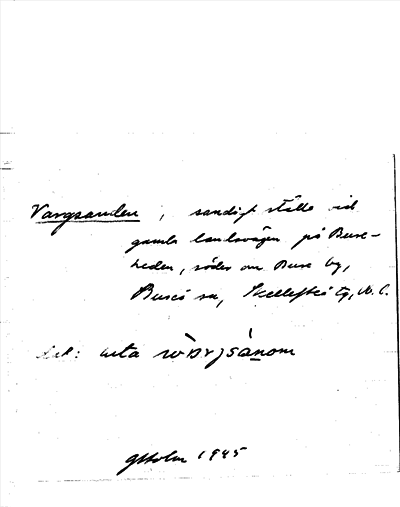 Vargsanden, sandigt ställe vid
gamla landsvägen på Bure-
heden, söder om Bure by,
Bureå sn, Skellefteå tg, V. B.
uta
GHolm 1945